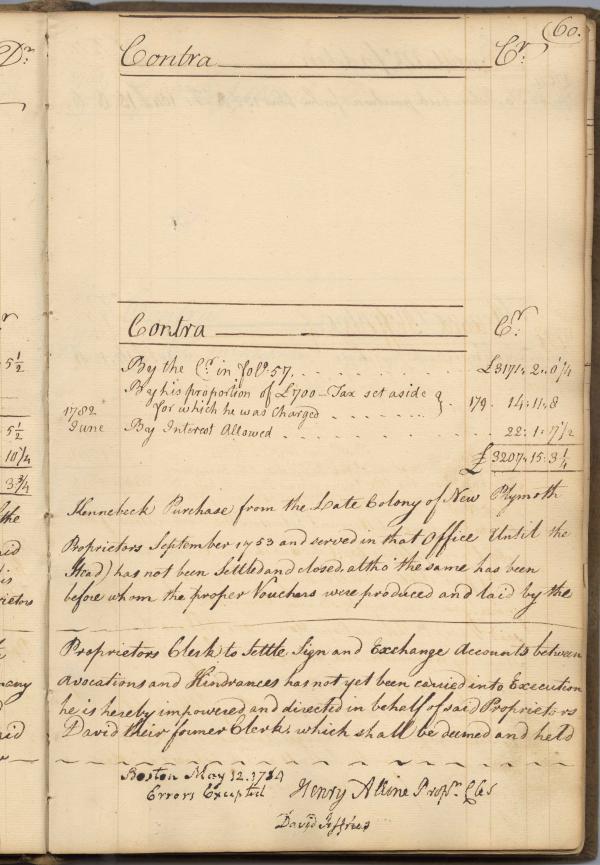 60.
Dr
Contra Cr
Contra Cr
By the Cr in folo. 57. £3171. 2. 0 1/4
By his proportion of £700 - Tax set aside
for which he was Charged 179 14: 11: 8
1782
June By Interest Allowed 22: 1: 7 1/2
£ 3207: 15: 3 1/4
5 1/2
5 1/2
10 1/4
3 3/4
Kennebeck Purchase from the Late Colony of New Plymoth
Proprietors September 1753 and served in that Office Until the
Head) has not been Settled and closed, altho' the same has been
before whom the proper Vouchers were produced and laid by the
Proprietors Clerk to Settle Sign and Exchange Accounts between
Avocations and Hindrances has not yet been carried into Execution
he is hereby impowered and directed in behalf of said Proprietors
David their former Clerk, which shall be deemed and held
Boston May 12. 1784
Errors Excepted Henry Alline Propsr. Cler
David Jeffries